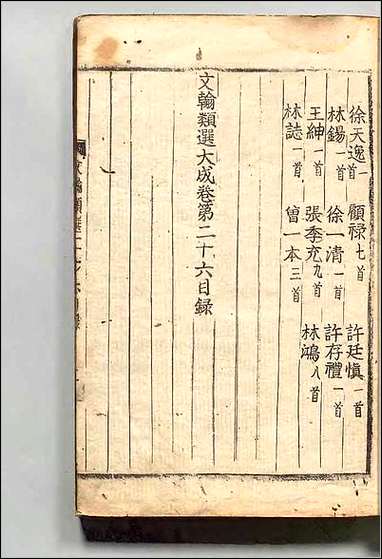 徐天逸一首 顧祿七首 許廷慎一首
林錫一首 徐一清一首 許存禮一首
王紳一首 張季充九首 林鴻八首
林誌一首 曾一本三首
文翰類選大成卷第二十六目錄
文翰類選